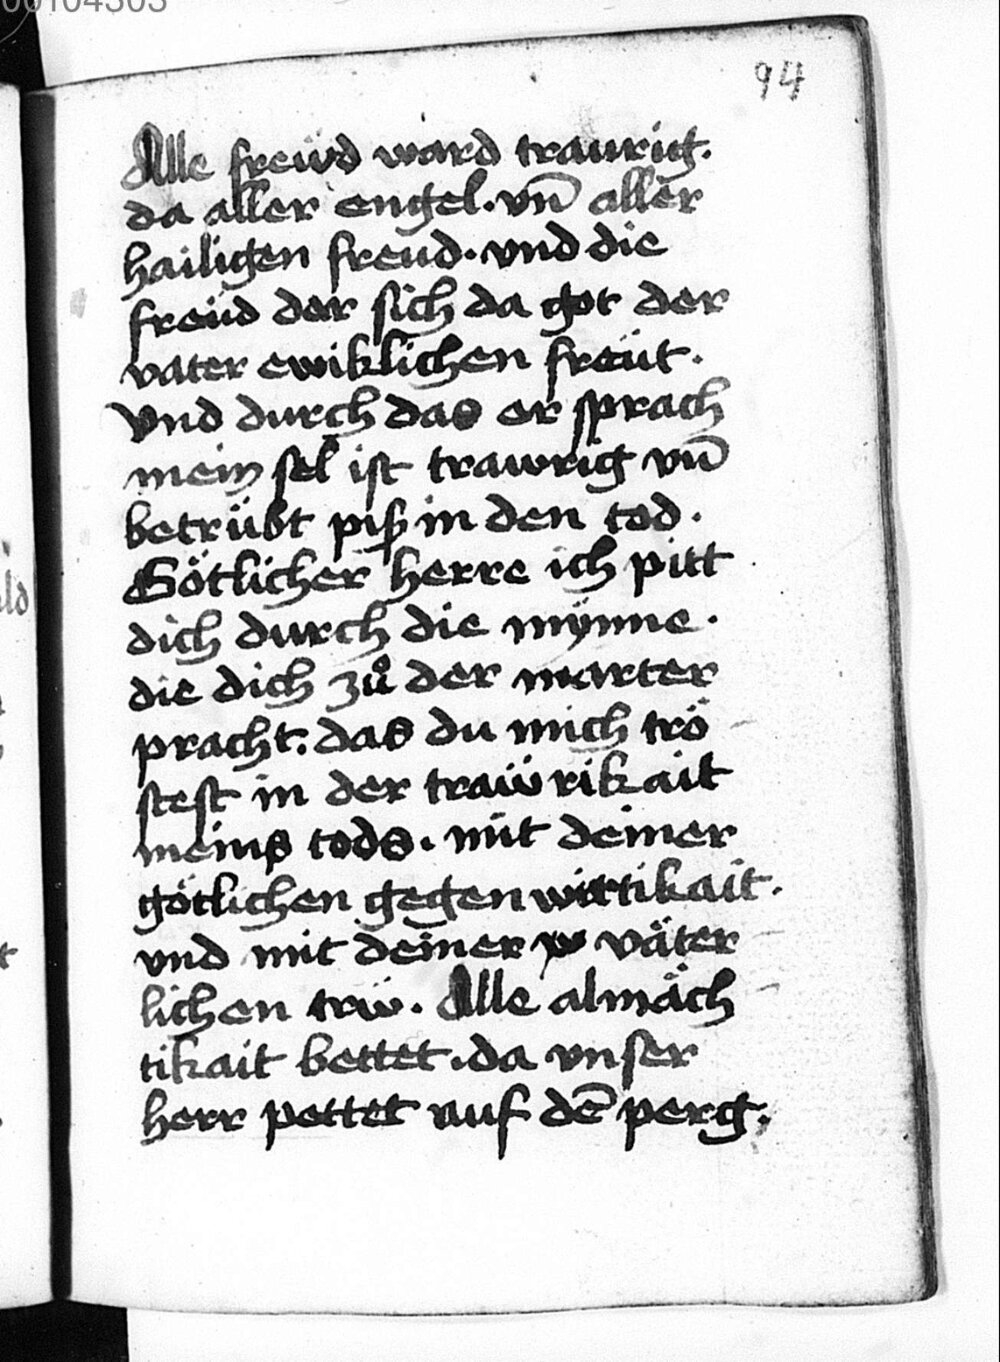 00104303
94
Alle freẅd ward traurig.
da aller engel. vn̄ aller
hailigen freud. vnd die
freüd der sich da got der
vater ewiklichen freüt.
Vnd durch das er sprach
mein sel ist trawrig vn̄
betrübt piß in den tod.
Götlicher herre ich pitt
dich durch die mÿnne.
die dich zů der marter
pracht. das du mich trö
stest in der traẅrikait
meins tods. mit deiner
götlichen gegenwirtikait.
vnd mit deiner w väter
lichen trẅ. Alle almäch
tikait bettet. da vnser
herr pettet auf dē perg.
ld
t